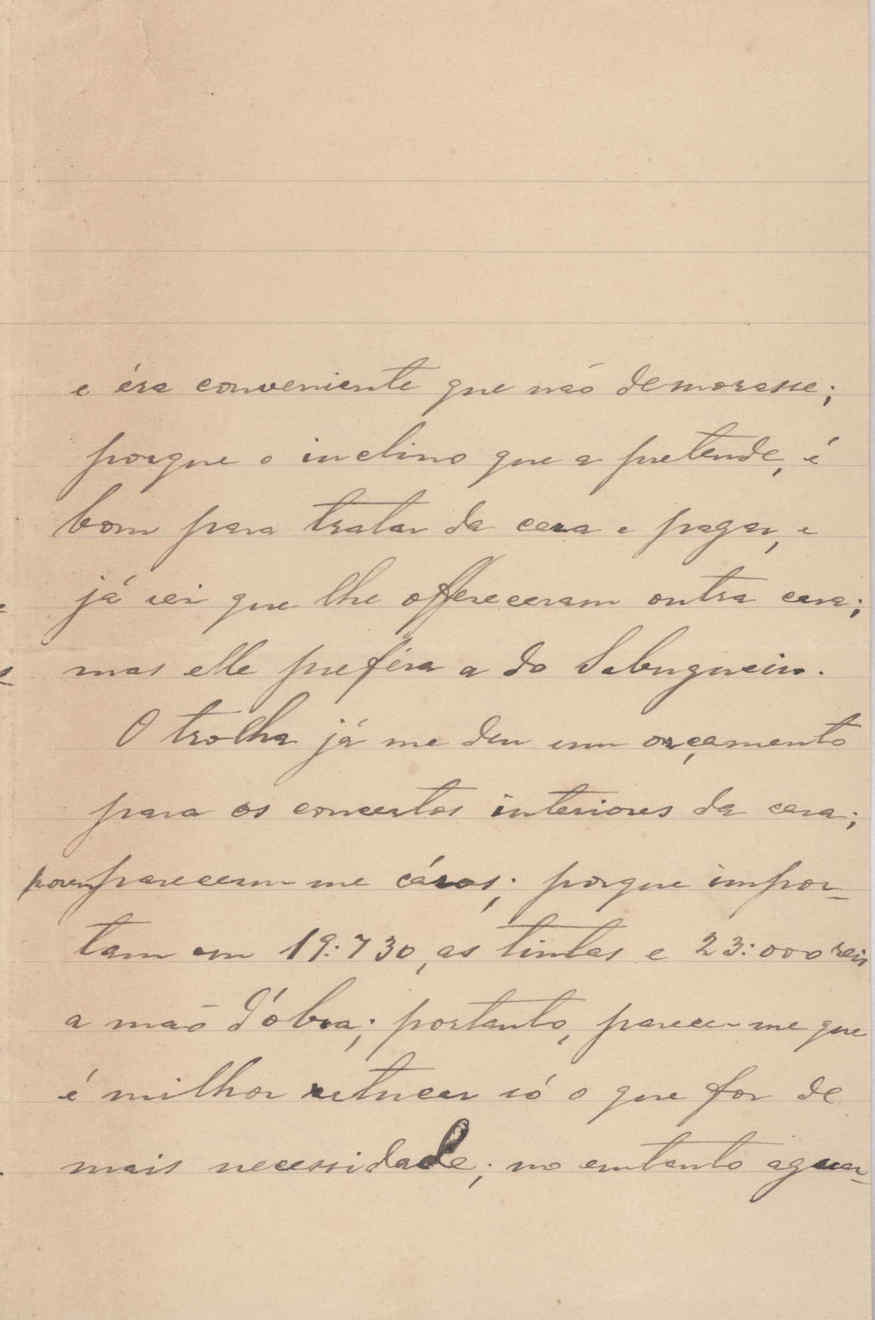 e éra conveniente que não demorasse;
porque o inclino que a pretende, é
bom para tratar da casa e pagar, e
já sei que lhe offereceram outra casa;
mas elle preféra a do Sabugueiro.
O trolha já me deu um orçamento
para os concertos interiores da casa;
porem parecem-me cáros; porque impor-
tam em 19:730, as tintas e 23:000 reis
a mão d'óbra; portanto, parece-me que
é milhor só o que for de
mais necessidade; no emtanto aguar-